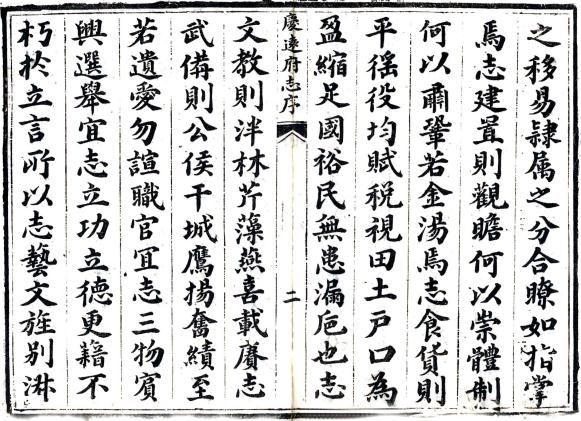 之移易隷属之分合瞭如指掌
焉志建置則觀瞻何以崇體制
何以肅鞏若金湯焉志食貨則
平徭役均賦税視田土戸口為
盈縮足國裕民無患漏巵也志
慶逺府志序
二
文教則泮林芹藻燕喜載賡志
武備則公侯干城鷹揚奮績至
若遺愛勿諠職官冝志三物賓
興選舉宜志立功立德更籍不
朽扵立言所以志藝文旌别淋